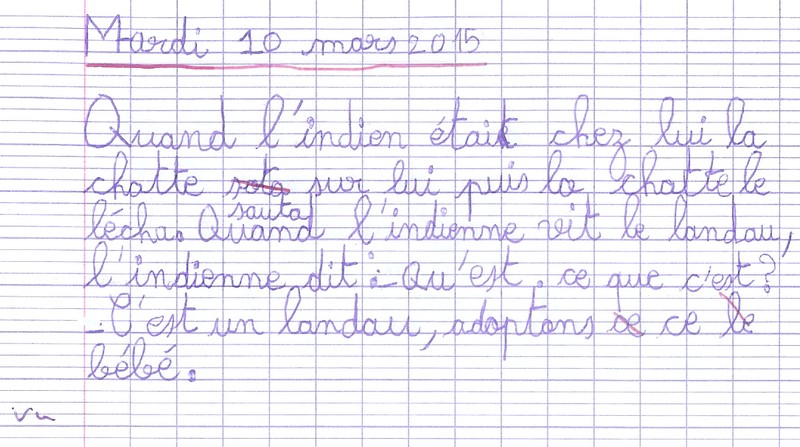 Mardi 10 mars 2015
Quand l'indien était chez lui la
chatte sota sur lui puis la chatte le
sauta
lécha. Quand l'indienne vit le landau,
l'indienne dit : - Qu'est. ce que c'est ?
- C'est un landau, adoptons ce ce le
bébé.
vu